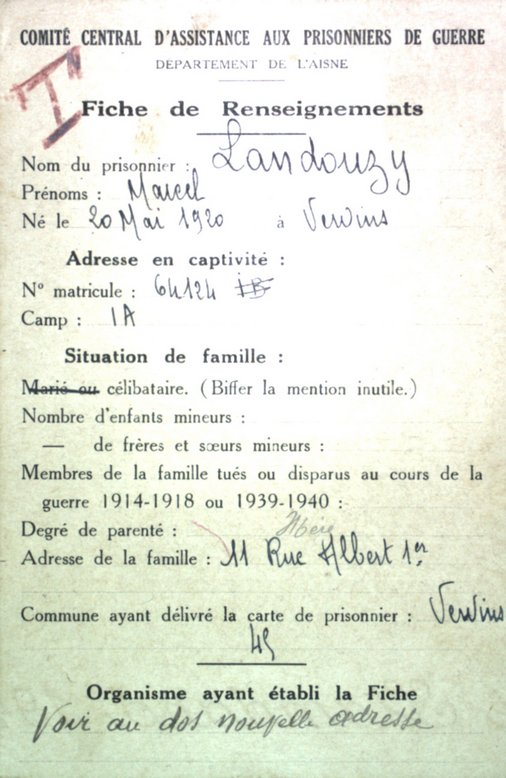 COMITÉ CENTRAL D'ASSISTANCE AUX PRISONNIERS DE GUERRE
DÉPARTEMENT DE L'AISNE
"I"
Fiche de Renseignements
Nom du prisonnier : Landouzy
Prénoms : Marcel
Né le 20 Mai 1920 à Vervins
Adresse en captivité :
N° matricule : 64124 IB
Camp : IA
Situation de famille :
Marié ou célibataire. (Biffer la mention inutile.)
Nombre d'enfants mineurs :
— de frères et sœurs mineurs :
Membres de la famille tués ou disparus au cours de la
guerre 1914-1918 ou 1939-1940 :
Degré de parenté : Mère
Adresse de la famille : 11 Rue Albert 1er
Commune ayant délivré la carte de prisonnier : Vervins
Organisme ayant établi la Fiche
Voir au dos nouvelle adresse